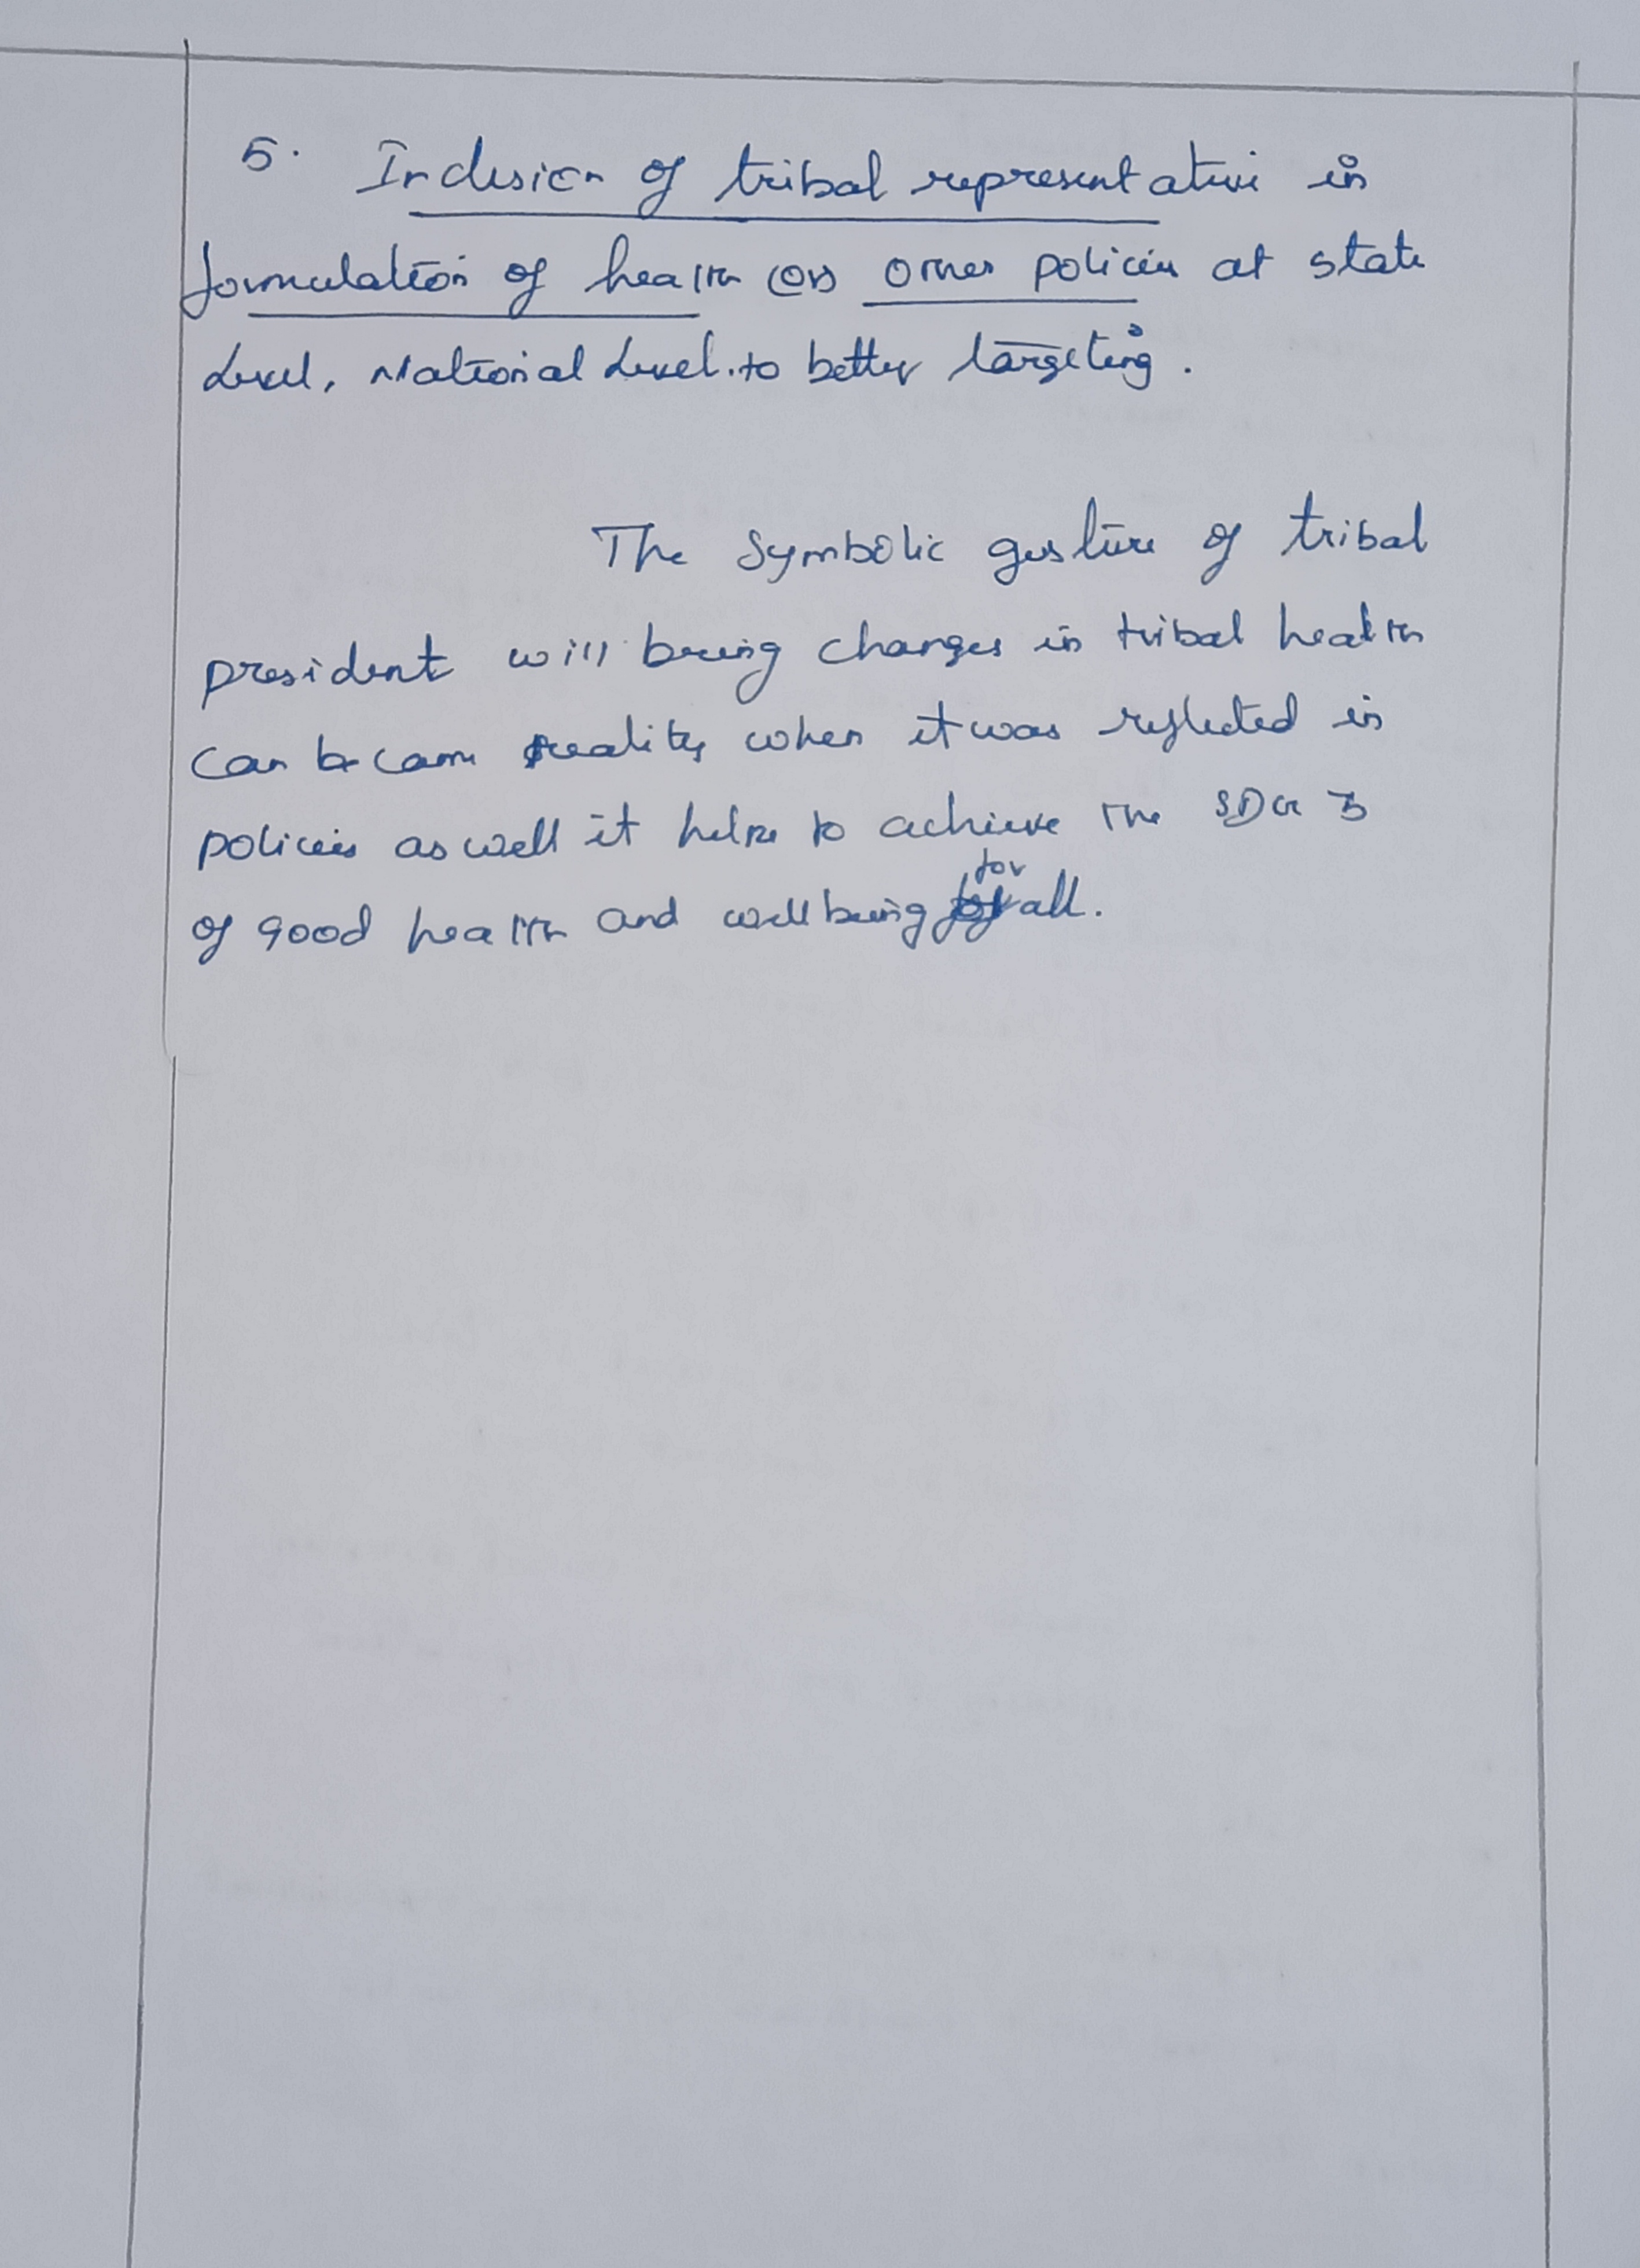 5. Inclusion of tribal representative in
formulation of health (or) other policies at state
level, National level. to better targeting.
The Symbolic gesture of tribal
president will bring changes in tribal health
can become reality when it was reflected in
policies as well it helps to achieve the SDG 3
of good health and wellbeing for all.